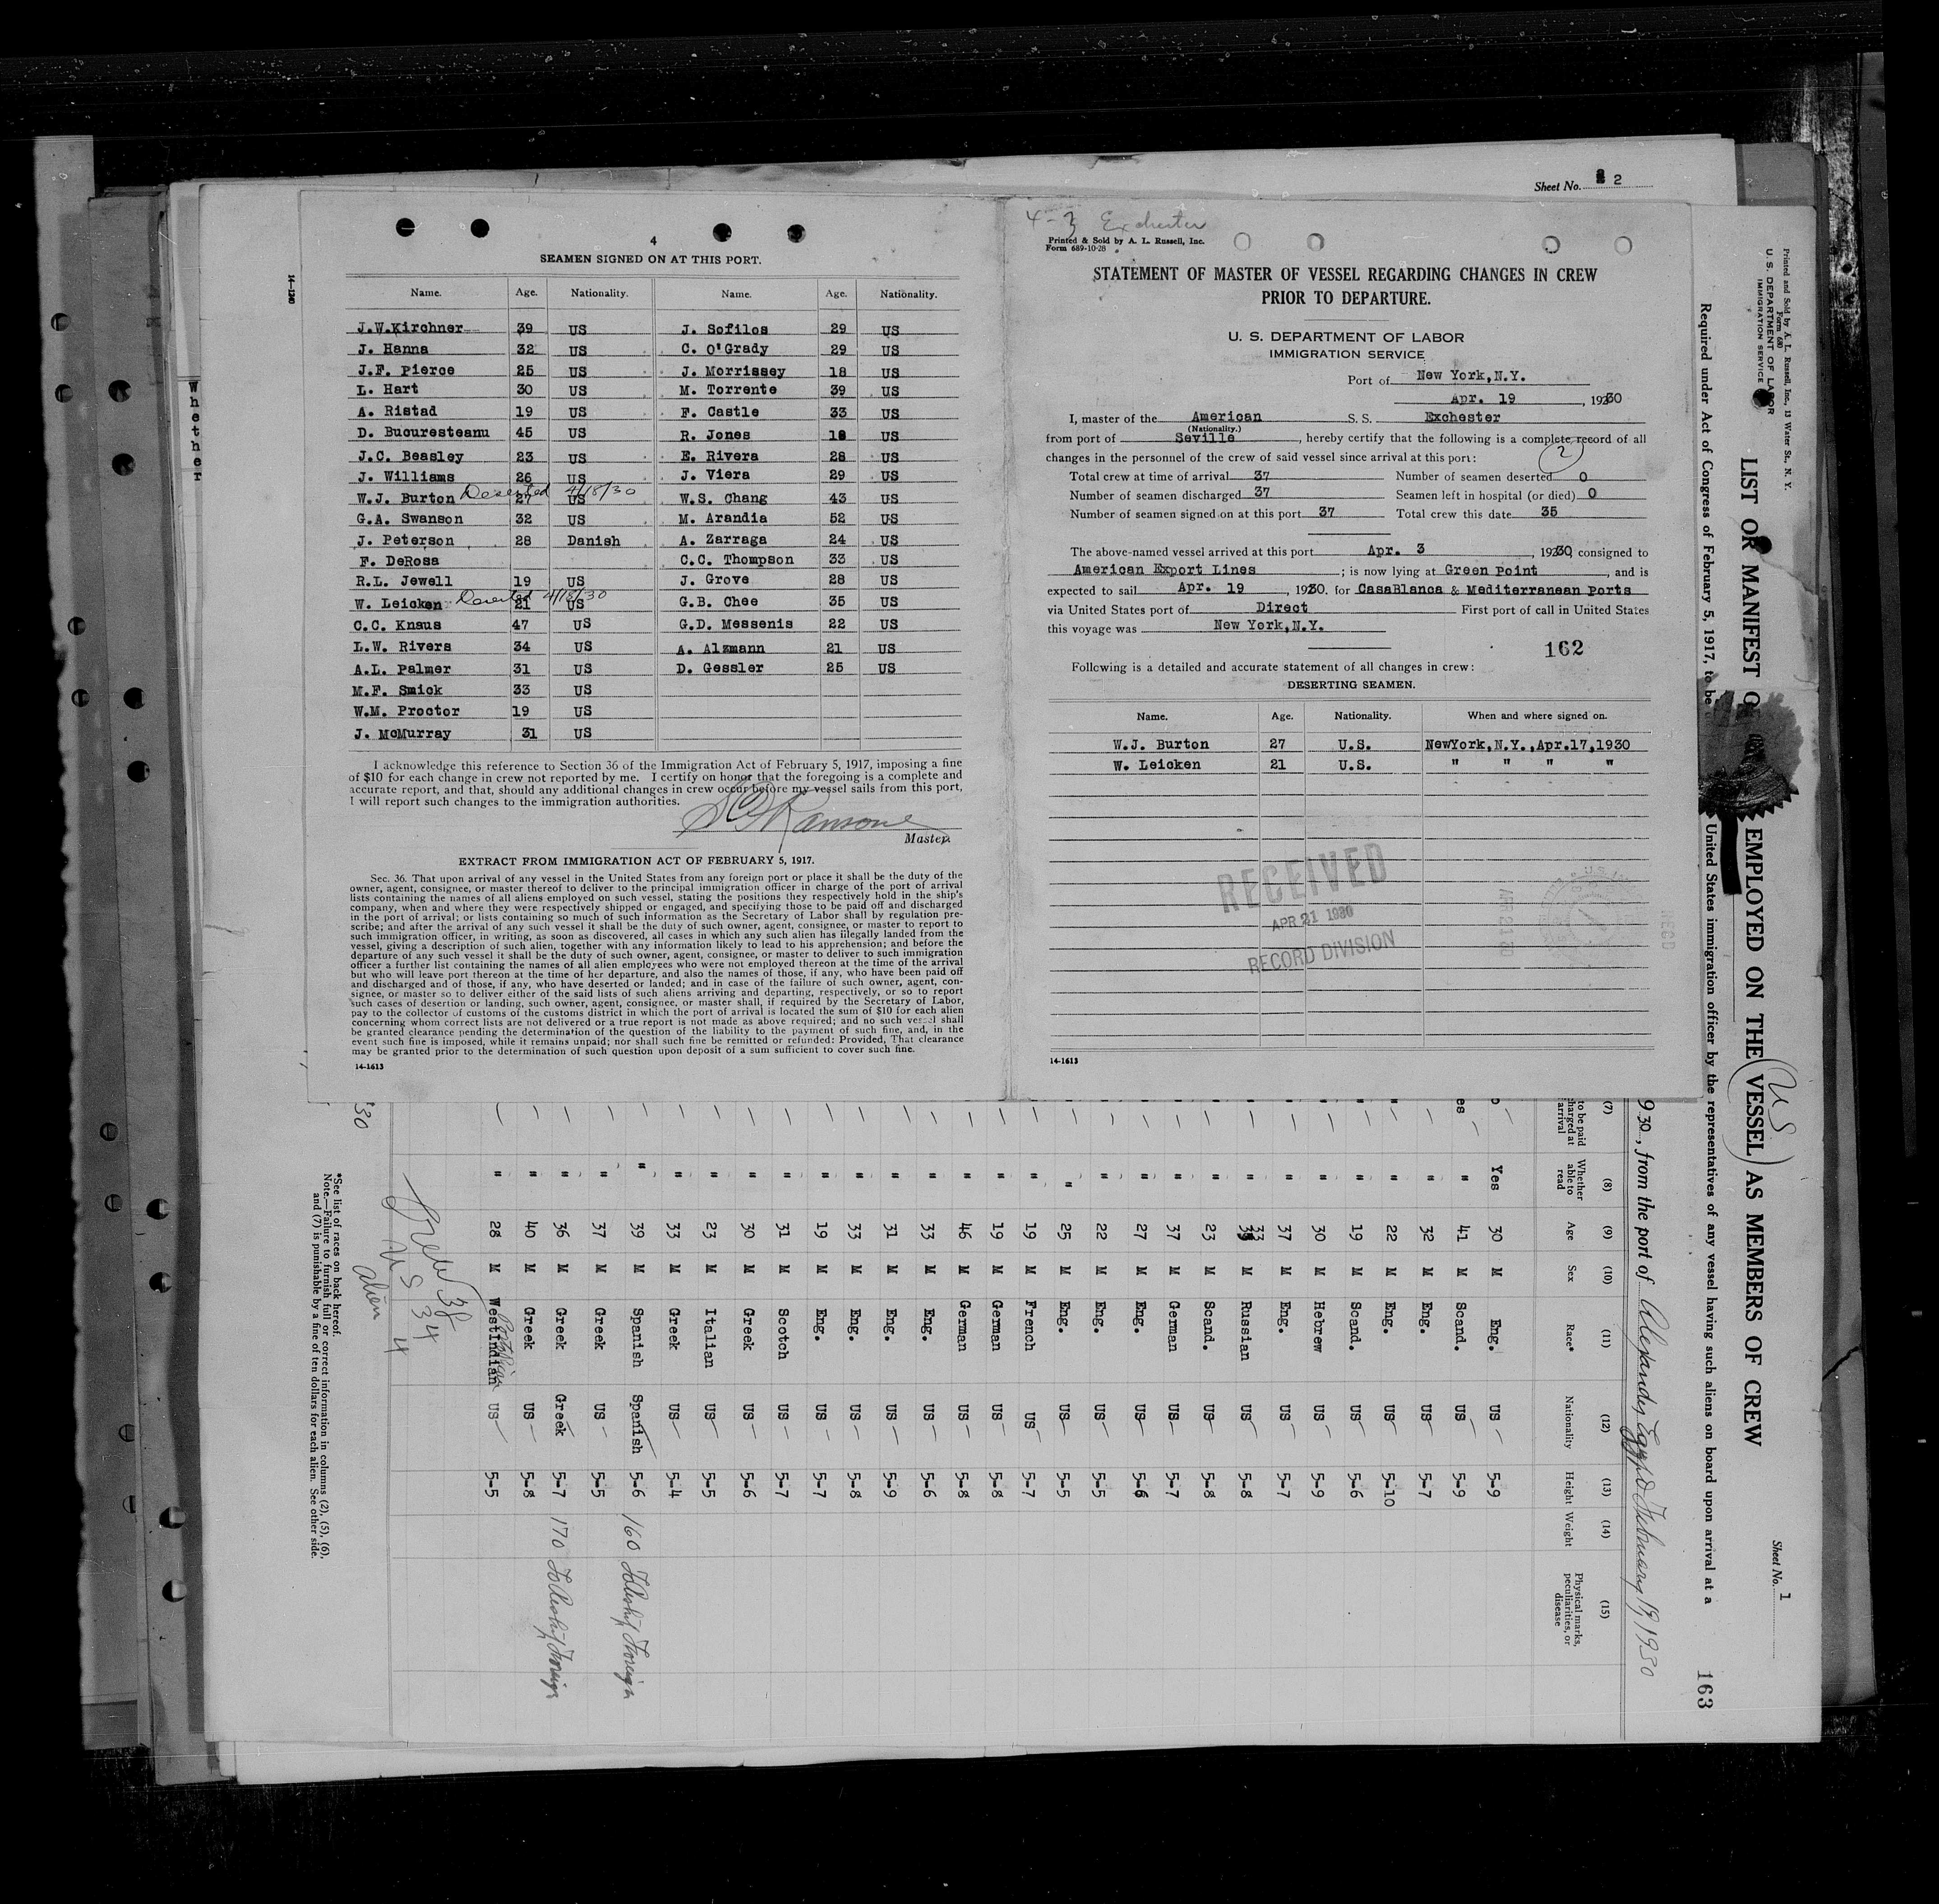 Sheet No. 2
4
SEAMEN SIGNED ON AT THIS PORT.
Name. Age. Nationality. Name. Age. Nationality.
J.W.Kirchner 39 US J. Sofilos 29 US
J. Hanna 32 US C. O'Grady 29 US
J.F. Pierce 25 US J. Morrissey 18 US
L. Hart 30 US M. Torrente 39 US
A. Ristad 19 US F. Castle 33 US
D. Bucuresteanu 45 US R. Jones 18 US
J.C. Beasley 23 US E. Rivera 28 US
J. Williams 26 US J. Viera 29 US
W.J. Burton Deserted 4/18/30 27 US W.S. Chang 43 US
G.A. Swanson 32 US M. Arandia 52 US
J. Peterson 28 Danish A. Zarraga 24 US
F. DeRosa C.C. Thompson 33 US
R.L. Jewell 19 US J. Grove 28 US
W. Leicken Deserted 4/18/30 21 US G.B. Chee 35 US
C.C. Knaus 47 US G.D. Messenis 22 US
L.W. Rivers 34 US A. Alzmann 21 US
A.L. Palmer 31 US D. Gessler 25 US
M.F. Smick 33 US
W.M. Proctor 19 US
J. McMurray 31 US
I acknowledge this reference to Section 36 of the Immigration Act of February 5, 1917, imposing a fine
of $10 for each change in crew not reported by me. I certify on honor that the foregoing is a complete and
accurate report, and that, should any additional changes in crew occur before my vessel sails from this port,
I will report such changes to the immigration authorities.
Master.
EXTRACT FROM IMMIGRATION ACT OF FEBRUARY 5, 1917.
Sec. 36. That upon arrival of any vessel in the United States from any foreign port or place it shall be the duty of the
owner, agent, consignee, or master thereof to deliver to the principal immigration officer in charge of the port of arrival
lists containing the names of all aliens employed on such vessel, stating the positions they respectively hold in the ship's
company, when and where they were respectively shipped or engaged, and specifying those to be paid off and discharged
in the port of arrival; or lists containing so much of such information as the Secretary of Labor shall by regulation pre-
scribe; and after the arrival of any such vessel it shall be the duty of such owner, agent, consignee, or master to report to
such immigration officer, in writing, as soon as discovered, all cases in which any such alien has illegally landed from the
vessel, giving a description of such alien, together with any information likely to lead to his apprehension; and before the
departure of any such vessel it shall be the duty of such owner, agent, consignee, or master to deliver to such immigration
officer a further list containing the names of all alien employees who were not employed thereon at the time of the arrival
but who will leave port thereon at the time of her departure, and also the names of those, if any, who have been paid off
and discharged and of those, if any, who have deserted or landed; and in case of the failure of such owner, agent, con-
signee, or master so to deliver either of the said lists of such aliens arriving and departing, respectively, or so to report
such cases of desertion or landing, such owner, agent, consignee, or master shall, if required by the Secretary of Labor,
pay to the collector of customs of the customs district in which the port of arrival is located the sum of $10 for each alien
concerning whom correct lists are not delivered or a true report is not made as above required; and no such vessel shall
be granted clearance pending the determination of the question of the liability to the payment of such fine, and, in the
event such fine is imposed, while it remains unpaid; nor shall such fine be remitted or refunded: Provided, That clearance
may be granted prior to the determination of such question upon deposit of a sum sufficient to cover such fine.
14-1613
4-3 Exchester
Printed & Sold by A. L. Russell, Inc.
Form 689-10-28
STATEMENT OF MASTER OF VESSEL REGARDING CHANGES IN CREW
PRIOR TO DEPARTURE.
U. S. DEPARTMENT OF LABOR
IMMIGRATION SERVICE
Port of New York,N.Y.
Apr. 19, 1930
I, master of the American S. S. Exchester
(Nationality.)
from port of Seville, hereby certify that the following is a complete record of all
changes in the personnel of the crew of said vessel since arrival at this port:
2
Total crew at time of arrival 37 Number of seamen deserted 0
Number of seamen discharged 37 Seamen left in hospital (or died) 0
Number of seamen signed on at this port 37 Total crew this date 35
The above-named vessel arrived at this port Apr. 3, 1930, consigned to
American Export Lines; is now lying at Green Point, and is
expected to sail Apr. 19, 1930. for CasaBlanca & Mediterranean Ports
via United States port of Direct First port of call in United States
this voyage was New York,N.Y.
162
Following is a detailed and accurate statement of all changes in crew:
DESERTING SEAMEN.
Name. Age. Nationality. When and where signed on.
W.J. Burton 27 U.S. NewYork,N.Y.,Apr.17,1930
W. Leicken 21 U.S. " " " "
RECEIVED
APR 21 1930
RECORD DIVISION
APR 21 30
RECD
14-1613
14-1240
Whether
Printed and Sold by A. L. Russell, Inc., 13 Water St., N. Y.
Form 680
U. S. DEPARTMENT OF LABOR
IMMIGRATION SERVICE
Sheet No. 1
LIST OR MANIFEST O EMPLOYED ON THE VESSEL AS MEMBERS OF CREW
US
Required under Act of Congress of February 5, 1917, to be United States immigration officer by the representatives of any vessel having such aliens on board upon arrival at a
163
930, from the port of Alexandria Egypt February 19, 1930
(7) (8) (9) (10) (11) (12) (13) (14) (15)
to be paid
charged at
arrival
Whether able to read Age Sex Race* Nationality Height Weight Physical marks, peculiarities, or disease
Yes 30 M Eng. US 5-9
es " 41 M Scand. US 5-9
" 32 M Eng. US 5-7
" 22 M Eng. US 5-10
" 19 M Scand. US 5-6
" 30 M Hebrew US 5-9
" 37 M Eng. US 5-7
" 33 M Russian US 5-8
" 23 M Scand. US 5-8
" 37 M German US 5-7
" 27 M Eng. US 5-6
" 22 M Eng. US 5-5
" 25 M Eng. US 5-5
" 19 M French US 5-7
" 19 M German US 5-8
" 46 M German US 5-8
" 33 M Eng. US 5-6
" 31 M Eng. US 5-9
" 33 M Eng. US 5-8
" 19 M Eng. US 5-7
" 31 M Scotch US 5-7
" 30 M Greek US 5-6
" 23 M Italian US 5-5
" 33 M Greek US 5-4
" 39 M Spanish Spanish 5-6 160 Foreign
" 37 M Greek US 5-5
" 36 M Greek Greek 5-7 170 Foreign
" 40 M Greek US 5-8
" 28 M WestIndian US 5-5
Crew 38
US 34
Alien 4
'30
*See list of races on back hereof.
Note.—Failure to furnish full or correct information in columns (2), (5), (6),
and (7) is punishable by a fine of ten dollars for each alien. See other side.